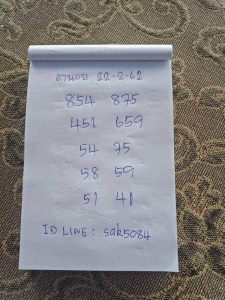 ฮานอย 22-2-62
854 875
451 659
54 75
58 59
51 41
ID LINE : sak5084